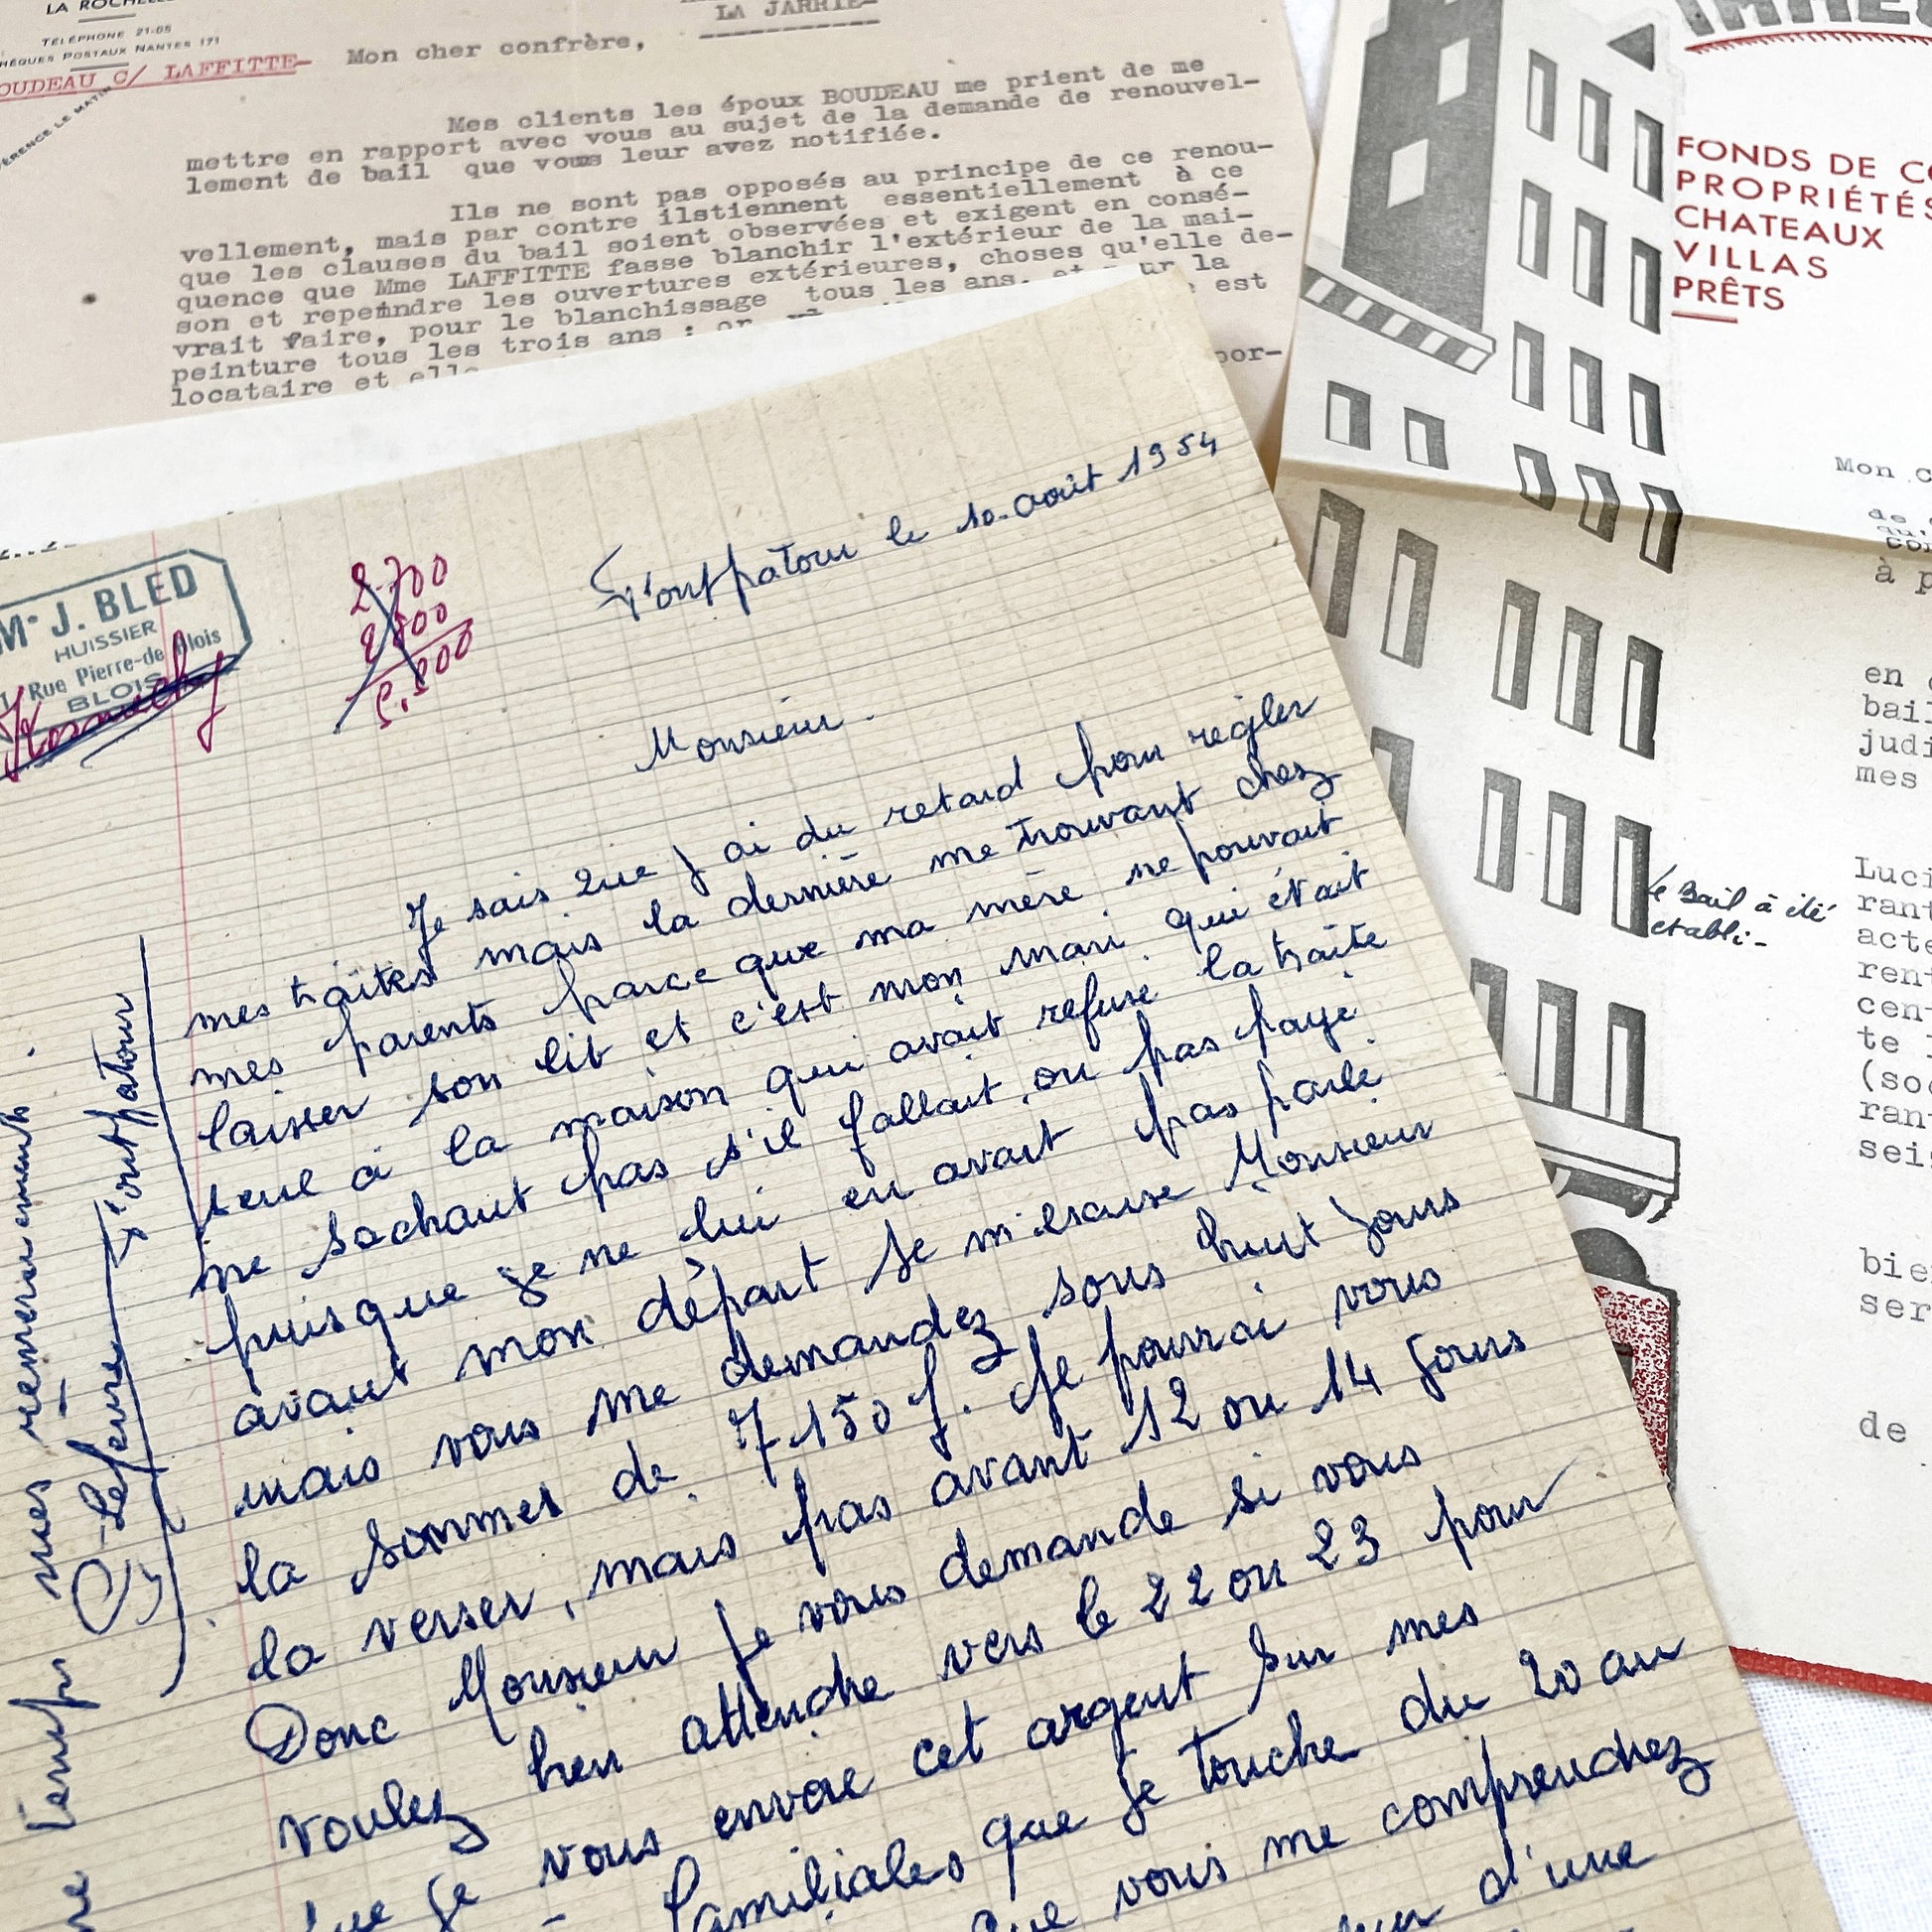 LA ROCHELLE
TÉLÉPHONE 21-05
CHÈQUES POSTAUX NANTES 171
BOUDEAU C/ LAFFITTE-
RÉFÉRENCE LE MATIN
LA JARRIE-
Mon cher confrère,
Mes clients les époux BOUDEAU me prient de me
mettre en rapport avec vous au sujet de la demande de renouvel-
lement de bail que vous leur avez notifiée.
Ils ne sont pas opposés au principe de ce renou-
vellement, mais par contre ilstiennent essentiellement à ce
que les clauses du bail soient observées et exigent en consé-
quence que Mme LAFFITTE fasse blanchir l'extérieur de la mai-
son et repeindre les ouvertures extérieures, choses qu'elle de-
vrait faire, pour le blanchissage tous les ans, et pour la
peinture tous les trois ans : or est
locataire et elle por-
FONDS DE CO
PROPRIÉTÉS
CHATEAUX
VILLAS
PRÊTS
Mon C
de
qu'
con
à p
en
bai
judi
mes
Le Bail a été
etabli-
Luci
rant
acte
ren
cen
te
(so
ran
sei
bie
ser
de
Me J. BLED
HUISSIER
Rue Pierre-de Blois
BLOIS
2.700
Fontpatour le 10 août 1954
Monsieur.
Je sais que j ai du retard pour regler
mes traites mais la dernière me trouvant chez
mes parents parce que ma mère ne pouvait
laisser son lit et c'est mon mari qui était
seul à la maison qui avait refuse la traite
ne sachant pas s'il fallait ou pas payé
puisque je ne lui en avait pas parlé
avant mon départ Je m'escuse Monsieur
mais vous me demandez sous huit Jours
la sommes de 7.150 f. Je pourrai vous
la verser, mais pas avant 12 ou 14 Jours
Donc Monsieur Je vous demande si vous
voulez bien attendre vers le 22 ou 23 pour
que je vous envoie cet argent sur mes
familiales que je touche du 20 au
que vous me comprendrez
d'une
mes remerciements.
Lefevre Fontpatour